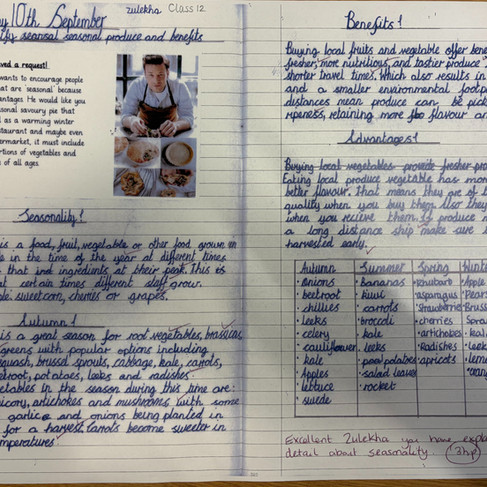 10th September
zulekha Class 12
seansal seasonal produce and benefits
ved a request!
wants to encourage people
at are seasonal because
antages. He would like you
sonal savoury pie that
d as a warming winter
staurant and maybe even
permarket, it must include
rtions of vegetables and
s of all ages
Seasonality!
is a food, fruit, vegetable or other food grown
in the time of the year at different times
that ingredients at their peak. This is
at certain times different grow.
sweetcorn, cherries or grapes.
Autumn!
is a great season for root vegetables, brassicas
greens with popular options including
squash, brussel sprouts, cabbage, kale, carrots,
root, potatoes, leeks and radishes
etables in the season during this time are:
icory, artichokes and mushrooms with some
garlics and onions being planted in
for a harvest. Carrots become sweeter in
mperatures
Benefits!
Buying local fruits and vegetable offer bene
fresher, more nutritious, and tastier produce
shorter travel times. Which also results in
and a smaller environmental footp
distances mean produce can be pick
ripeness, retaining more flavour an
Advantages!
Buying local vegetables provide fresher pro
Eating local produce vegetable has mor
better flavour. That means they are of
quality when you buy them. Also they
when you recieve them. If produce
a long distance ship make sure
harvested early.
Autumn Summer Spring Winte
Onions Bananas rhubarb Apple
beetroot kiwi asparagus Pear
chillies carrots Strawberries Bruss
leeks broccoli cherries Spro
celery kale artichokes kal
cauliflower leeks Radishes Leek
kale potatoes apricots lem
Apples salad leaves oran
lettuce rocket
swede
Excellent Zulekha you have expla
detail about seasonality. 3hp